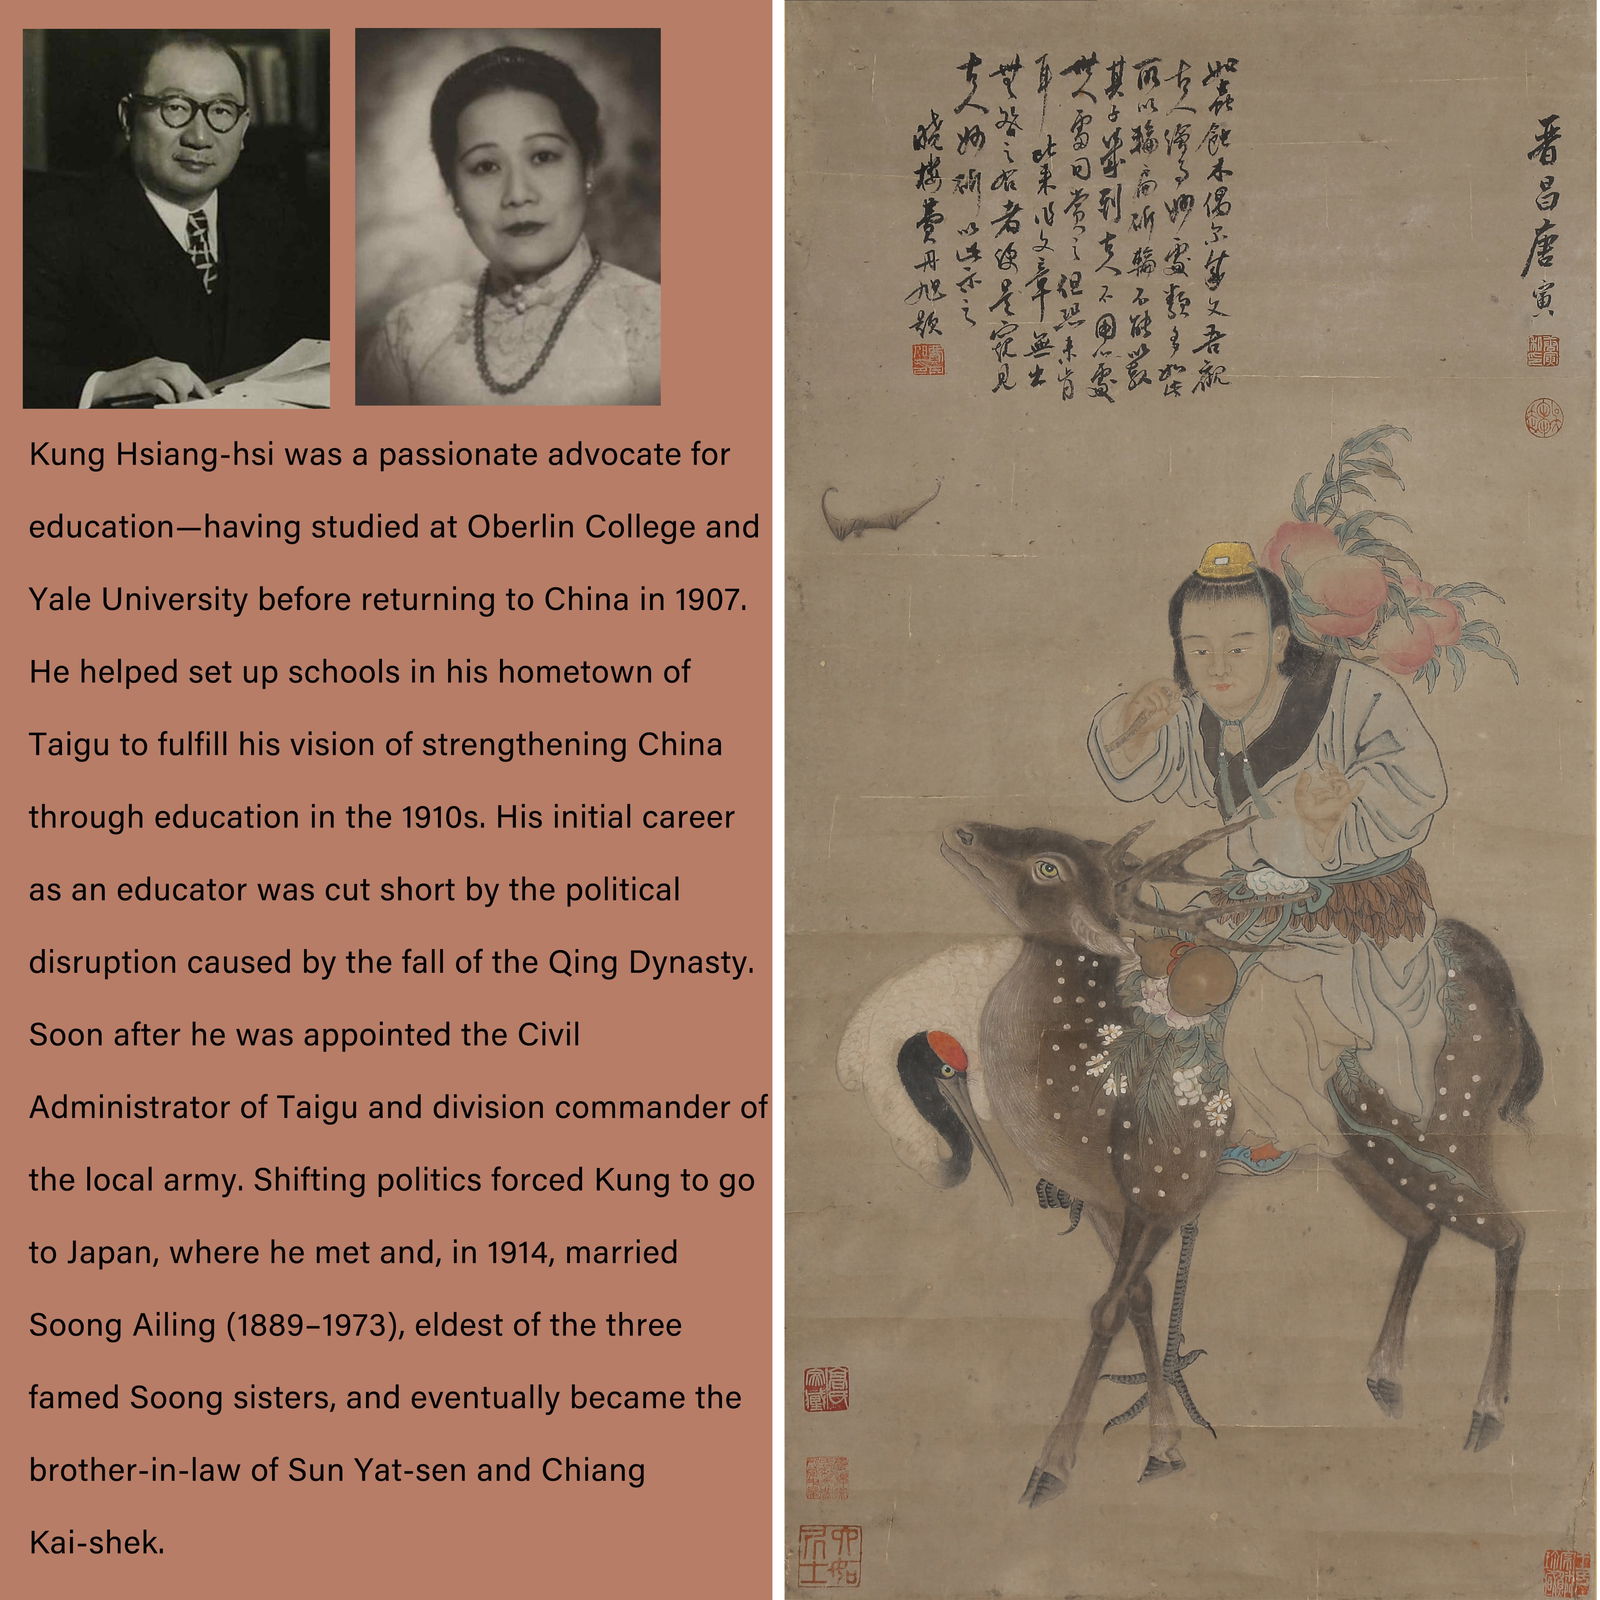 Kung Hsiang-hsi was a passionate advocate for
education—having studied at Oberlin College and
Yale University before returning to China in 1907.
He helped set up schools in his hometown of
Taigu to fulfill his vision of strengthening China
through education in the 1910s. His initial career
as an educator was cut short by the political
disruption caused by the fall of the Qing Dynasty.
Soon after he was appointed the Civil
Administrator of Taigu and division commander of
the local army. Shifting politics forced Kung to go
to Japan, where he met and, in 1914, married
Soong Ailing (1889–1973), eldest of the three
famed Soong sisters, and eventually became the
brother-in-law of Sun Yat-sen and Chiang
Kai-shek.
晋昌唐寅
如蟲蝕木偶尔成文吾觀
古人繪事妙處類多如此
所以輪扁斫輪不能以教
其子以到古人不用心處
世人雷同賞之但恐未肯
耳比來作文章無出
無咎之右者便是窺見
古人妙斫以此示之
曉樓費丹旭題
六如居士